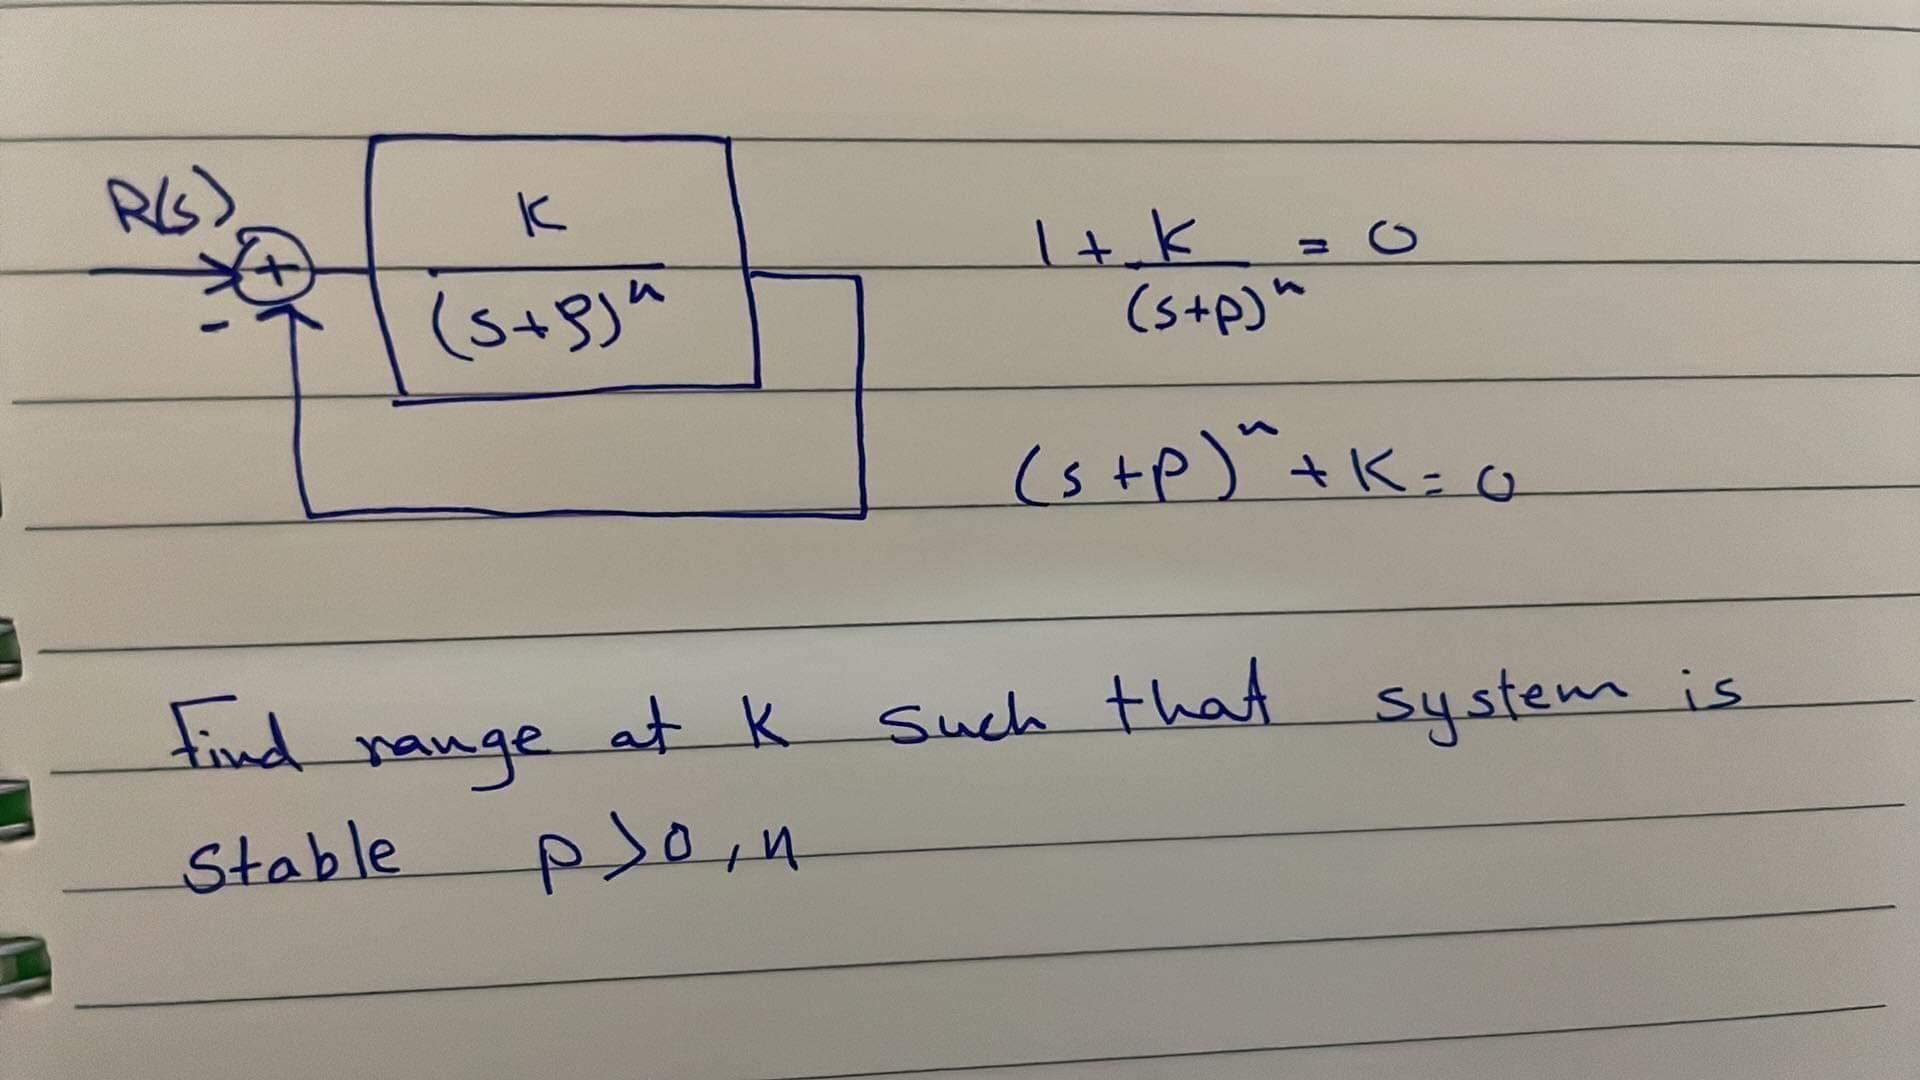 R(s)
+
-
K
(s+p)^n
1 + k = 0
(s+p)^n
(s+p)^n + K = 0
Find range at K such that system is
stable p>0, n